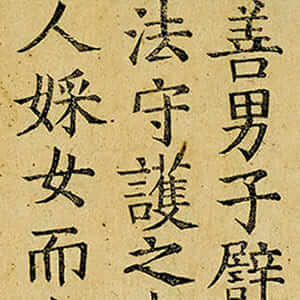 善男子譬
法守護之
人婇女而